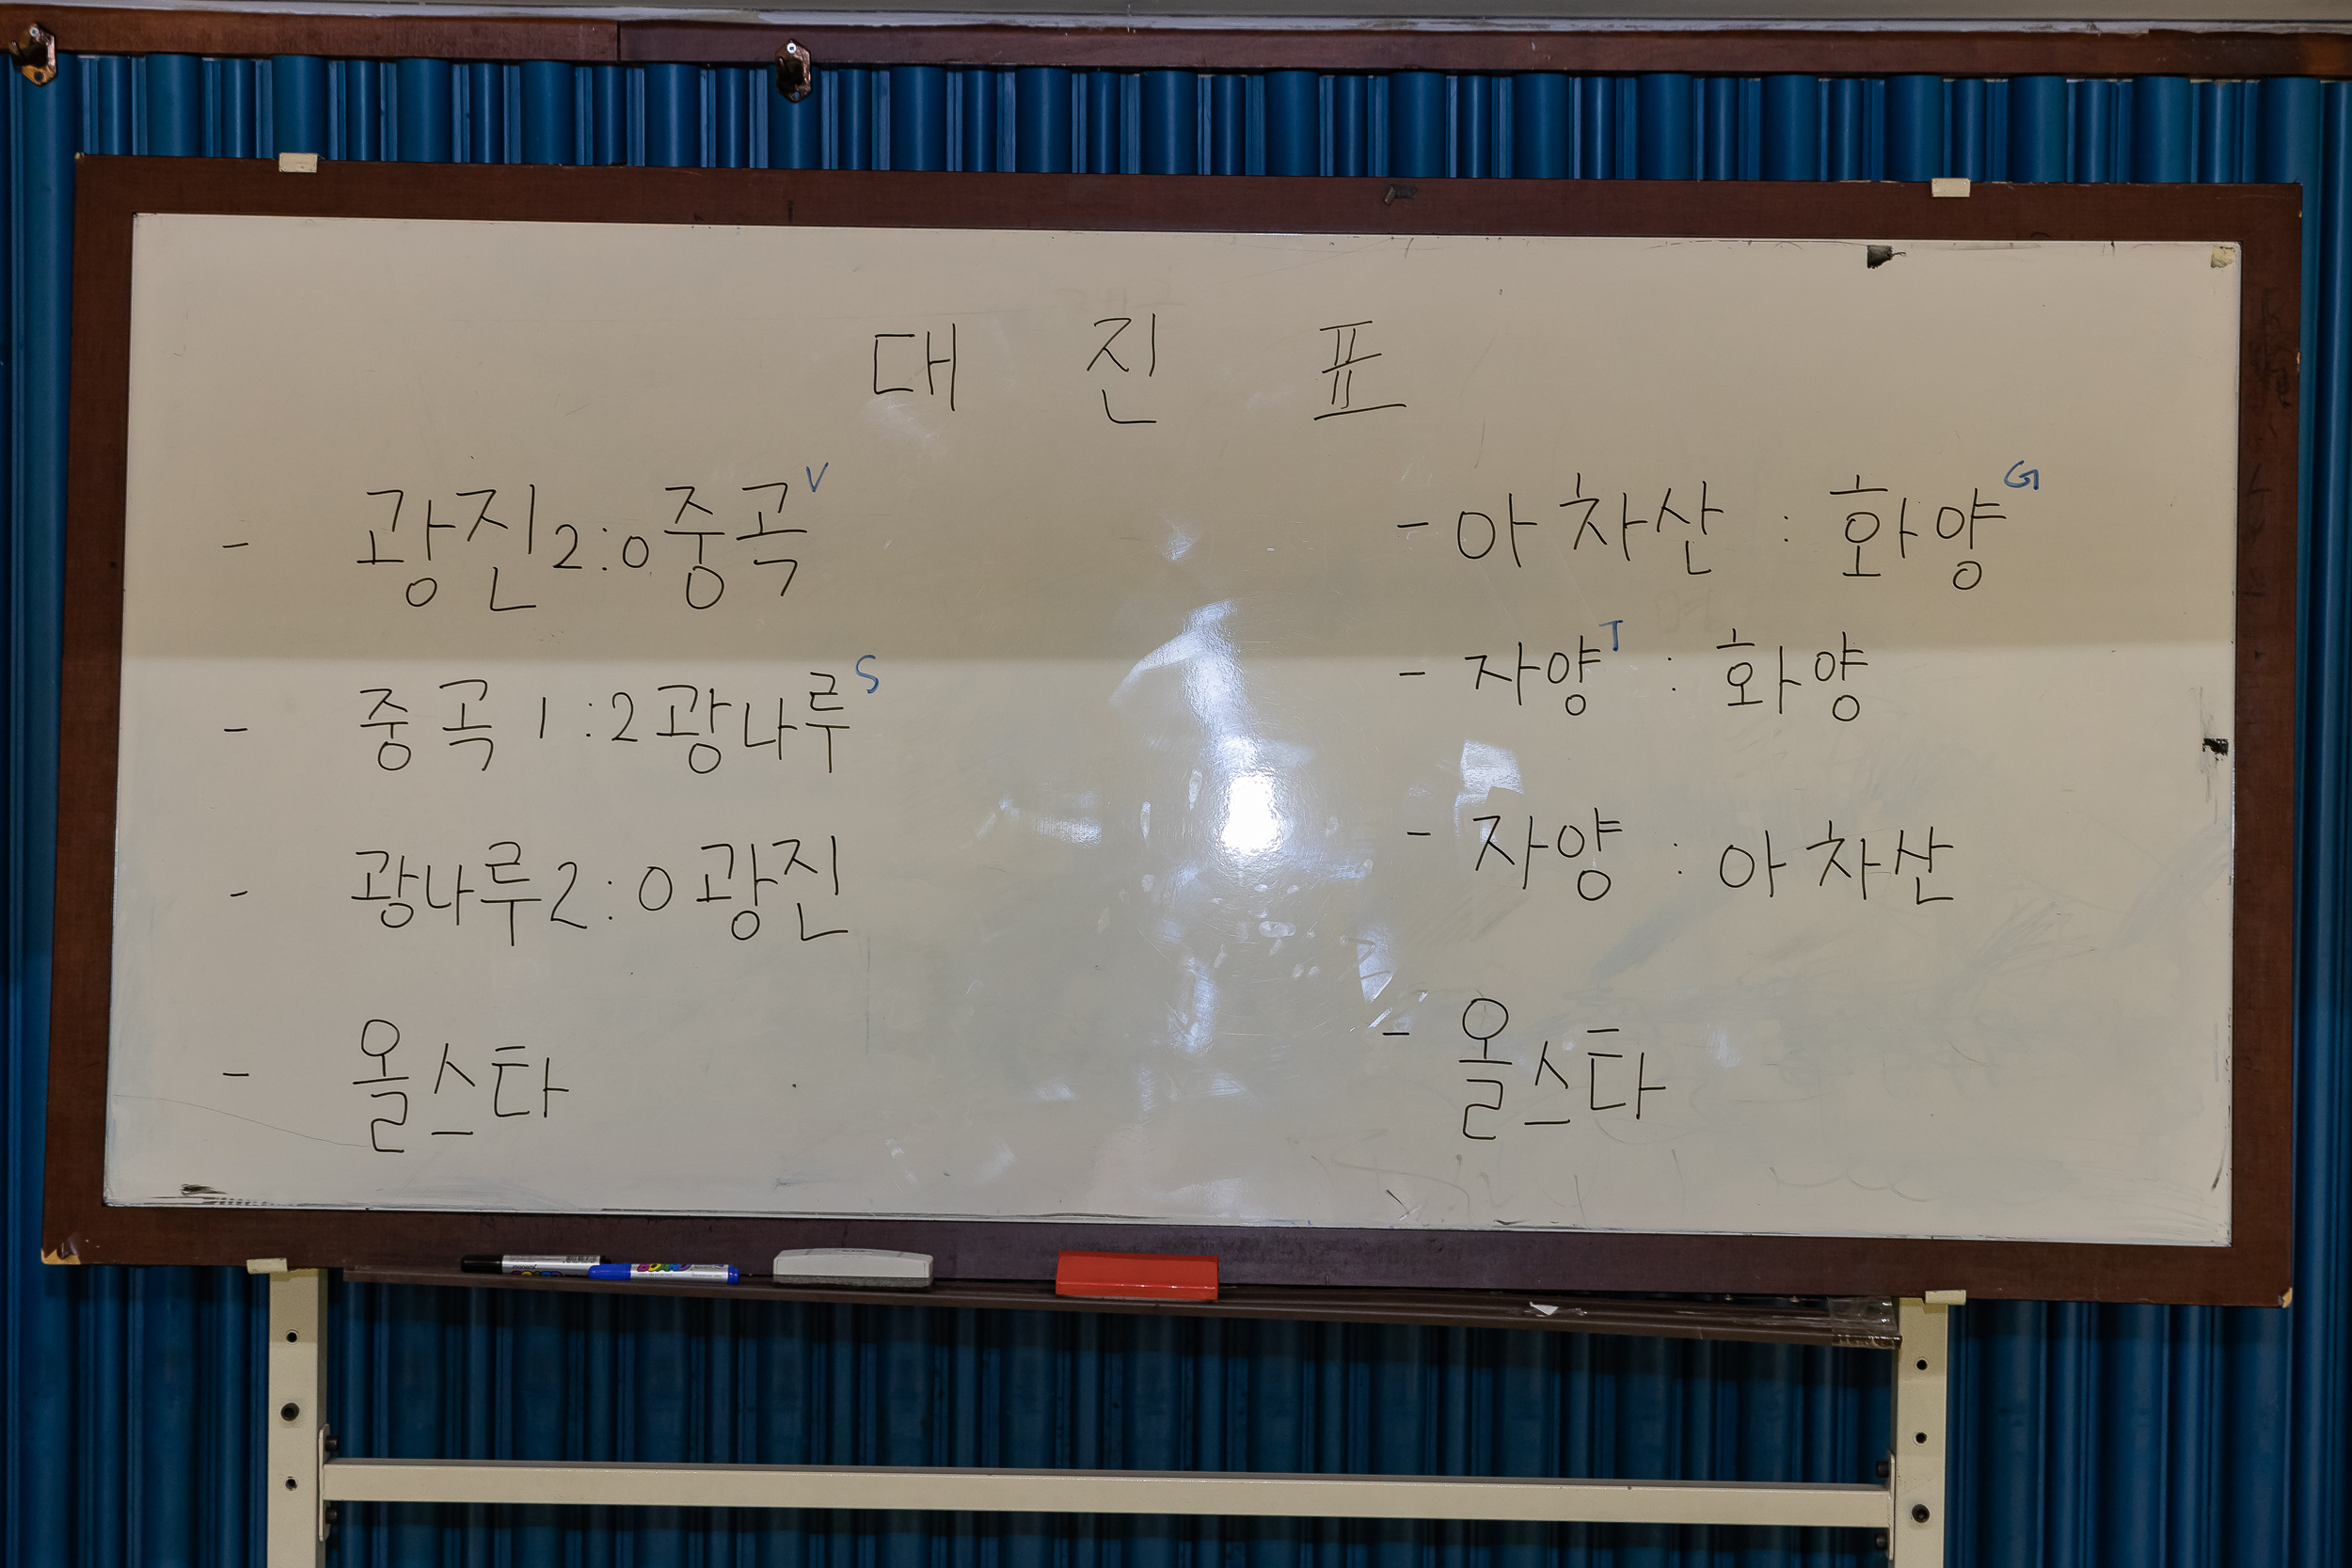 대 진 표
- 광진 2:0 중곡 V
- 중곡 1:2 광나루 S
- 광나루 2:0 광진
- 올스타
- 아차산 : 화양 G
- 자양 T : 화양
- 자양 : 아차산
- 올스타